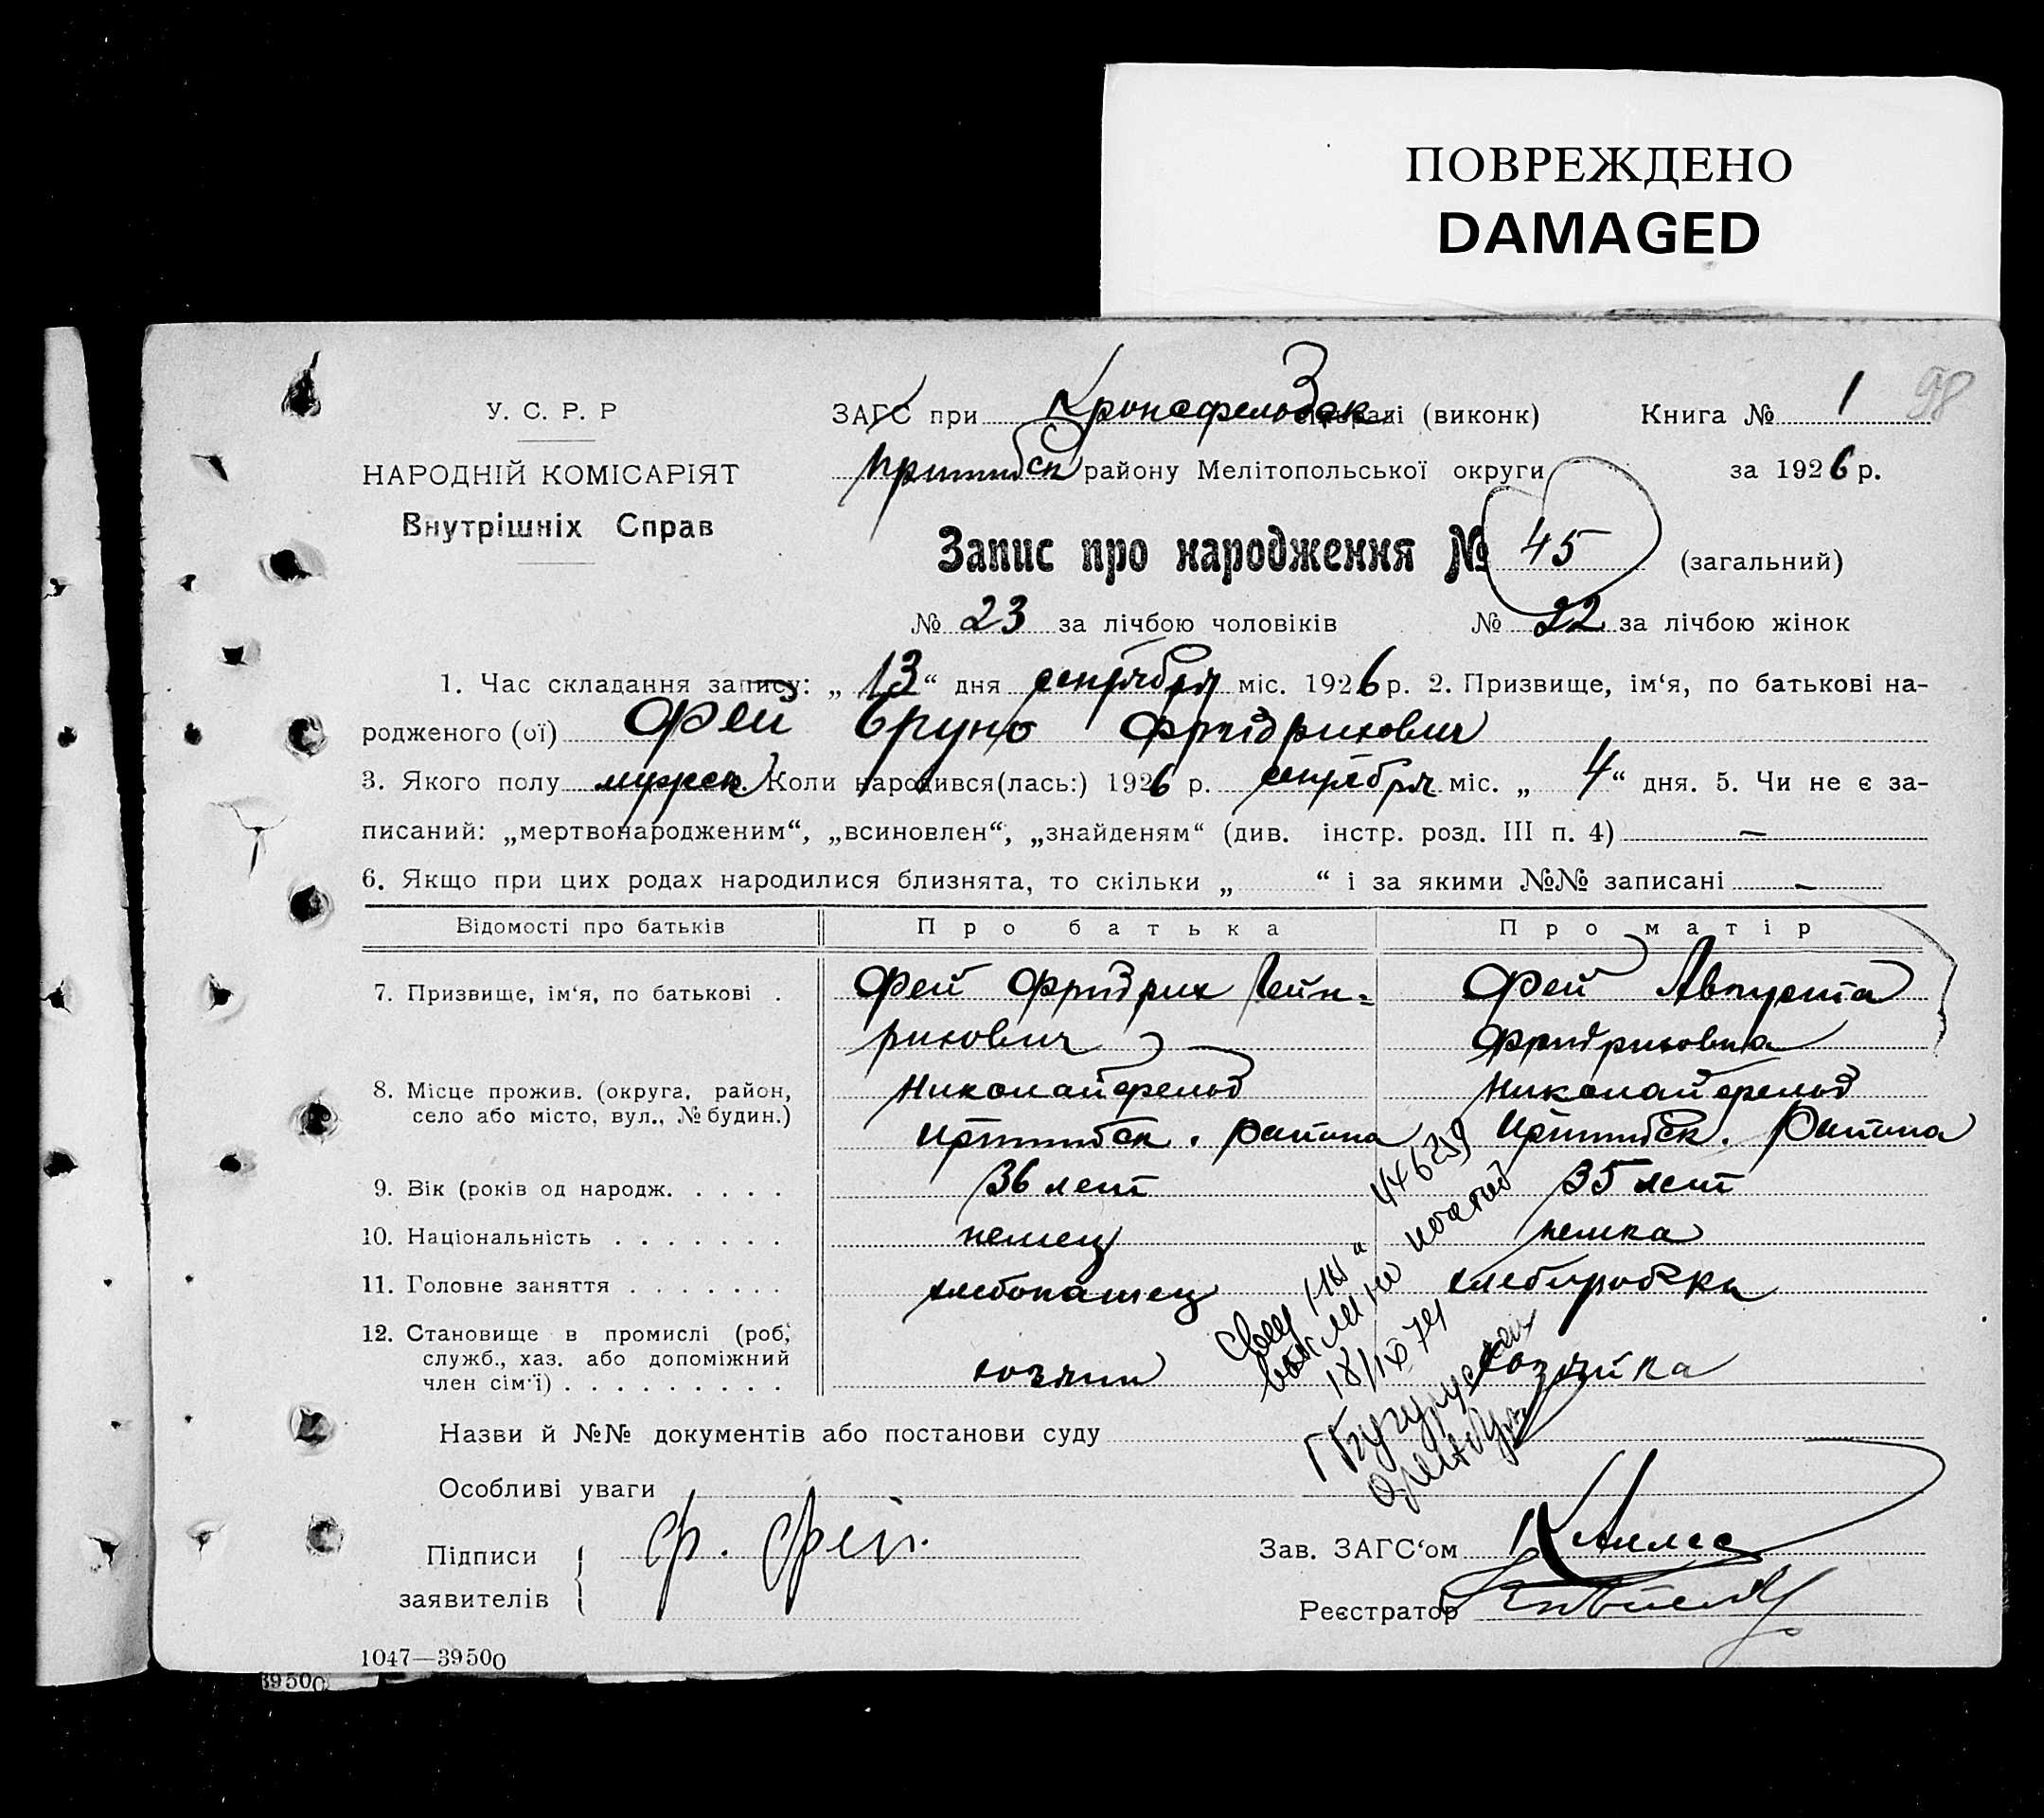 ПОВРЕЖДЕНО
DAMAGED
У. С. Р. Р
НАРОДНІЙ КОМІСАРІЯТ
Внутрішніх Справ
ЗАГС при Кронсфельдск. сільраді (виконк)
Книга № 1
98
Пришибск району Мелітопольської округи
за 1926 р.
Запис про народження № 45 (загальний)
№ 23 за лічбою чоловіків № 22 за лічбою жінок
1. Час складання запису: „ 13 “ дня сентября міс. 1926 р. 2. Призвище, ім‘я, по батькові на-
родженого (ої) Фей Бруно Фридрихович
3. Якого полу мужск. Коли народився(лась:) 1926 р. сентября міс. „ 4 “ дня. 5. Чи не є за-
писаний: „мертвонародженим“, „всиновлен“, „знайденям“ (див. інстр. розд. III п. 4) —
6. Якщо при цих родах народилися близнята, то скільки „ “ і за якими №№ записані —
Відомості про батьків Про батька Про матір
7. Призвище, ім‘я, по батькові . Фей Фридрих Гейн= Фей Августа
рихович Фридриховна
8. Місце прожив. (округа, район, Николайфельд Николайфельд
село або місто, вул., № будин.) Пришибск. района Пришибск. района
9. Вік (років од народж. . . . . 36 лет 35 лет
10. Національність . . . . . . . немец немка
11. Головне заняття . . . . . . . хлебопашец хлеборобка
12. Становище в промислі (роб,
служб., хаз. або допоміжний хозяин хозяйка
член сім‘ї) . . . . . . . . .
18/IX 74
г Бугуруслан
Назви й №№ документів або постанови суду
Особливі уваги
Підписи
заявителів
Ф. Фей.
Зав. ЗАГС‘ом
Реєстратор
1047—39500
39500